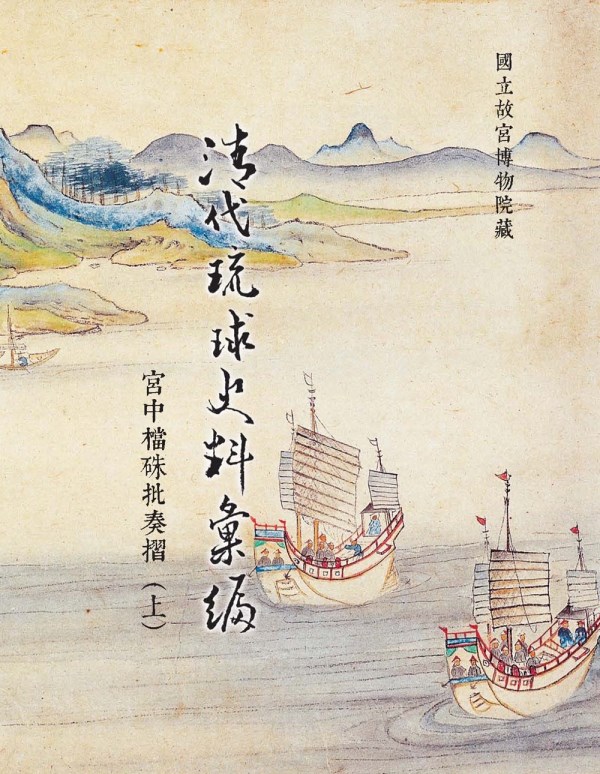 國立故宮博物院藏
清代琉球史料彙編
宮中檔硃批奏摺（上）